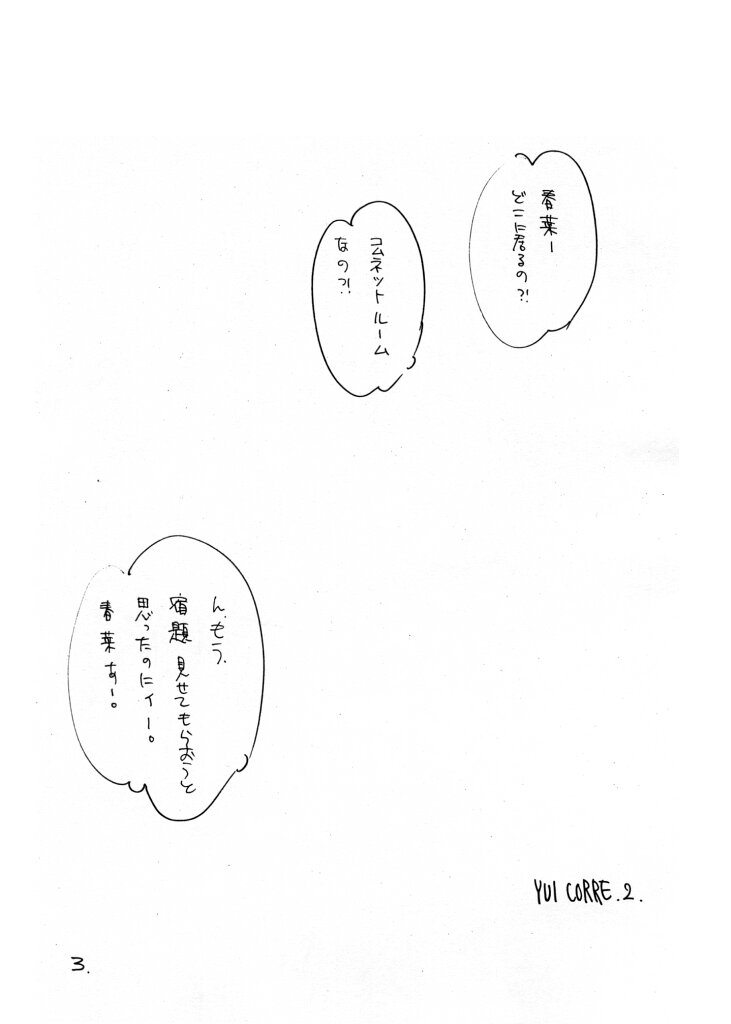 春葉ー
どこに居るの?!
コムネットルーム
なの?!
ん、もう、
宿題見せてもらおうと
思ったのにィー。
春葉すー。
YUI CORRE.2.
3.